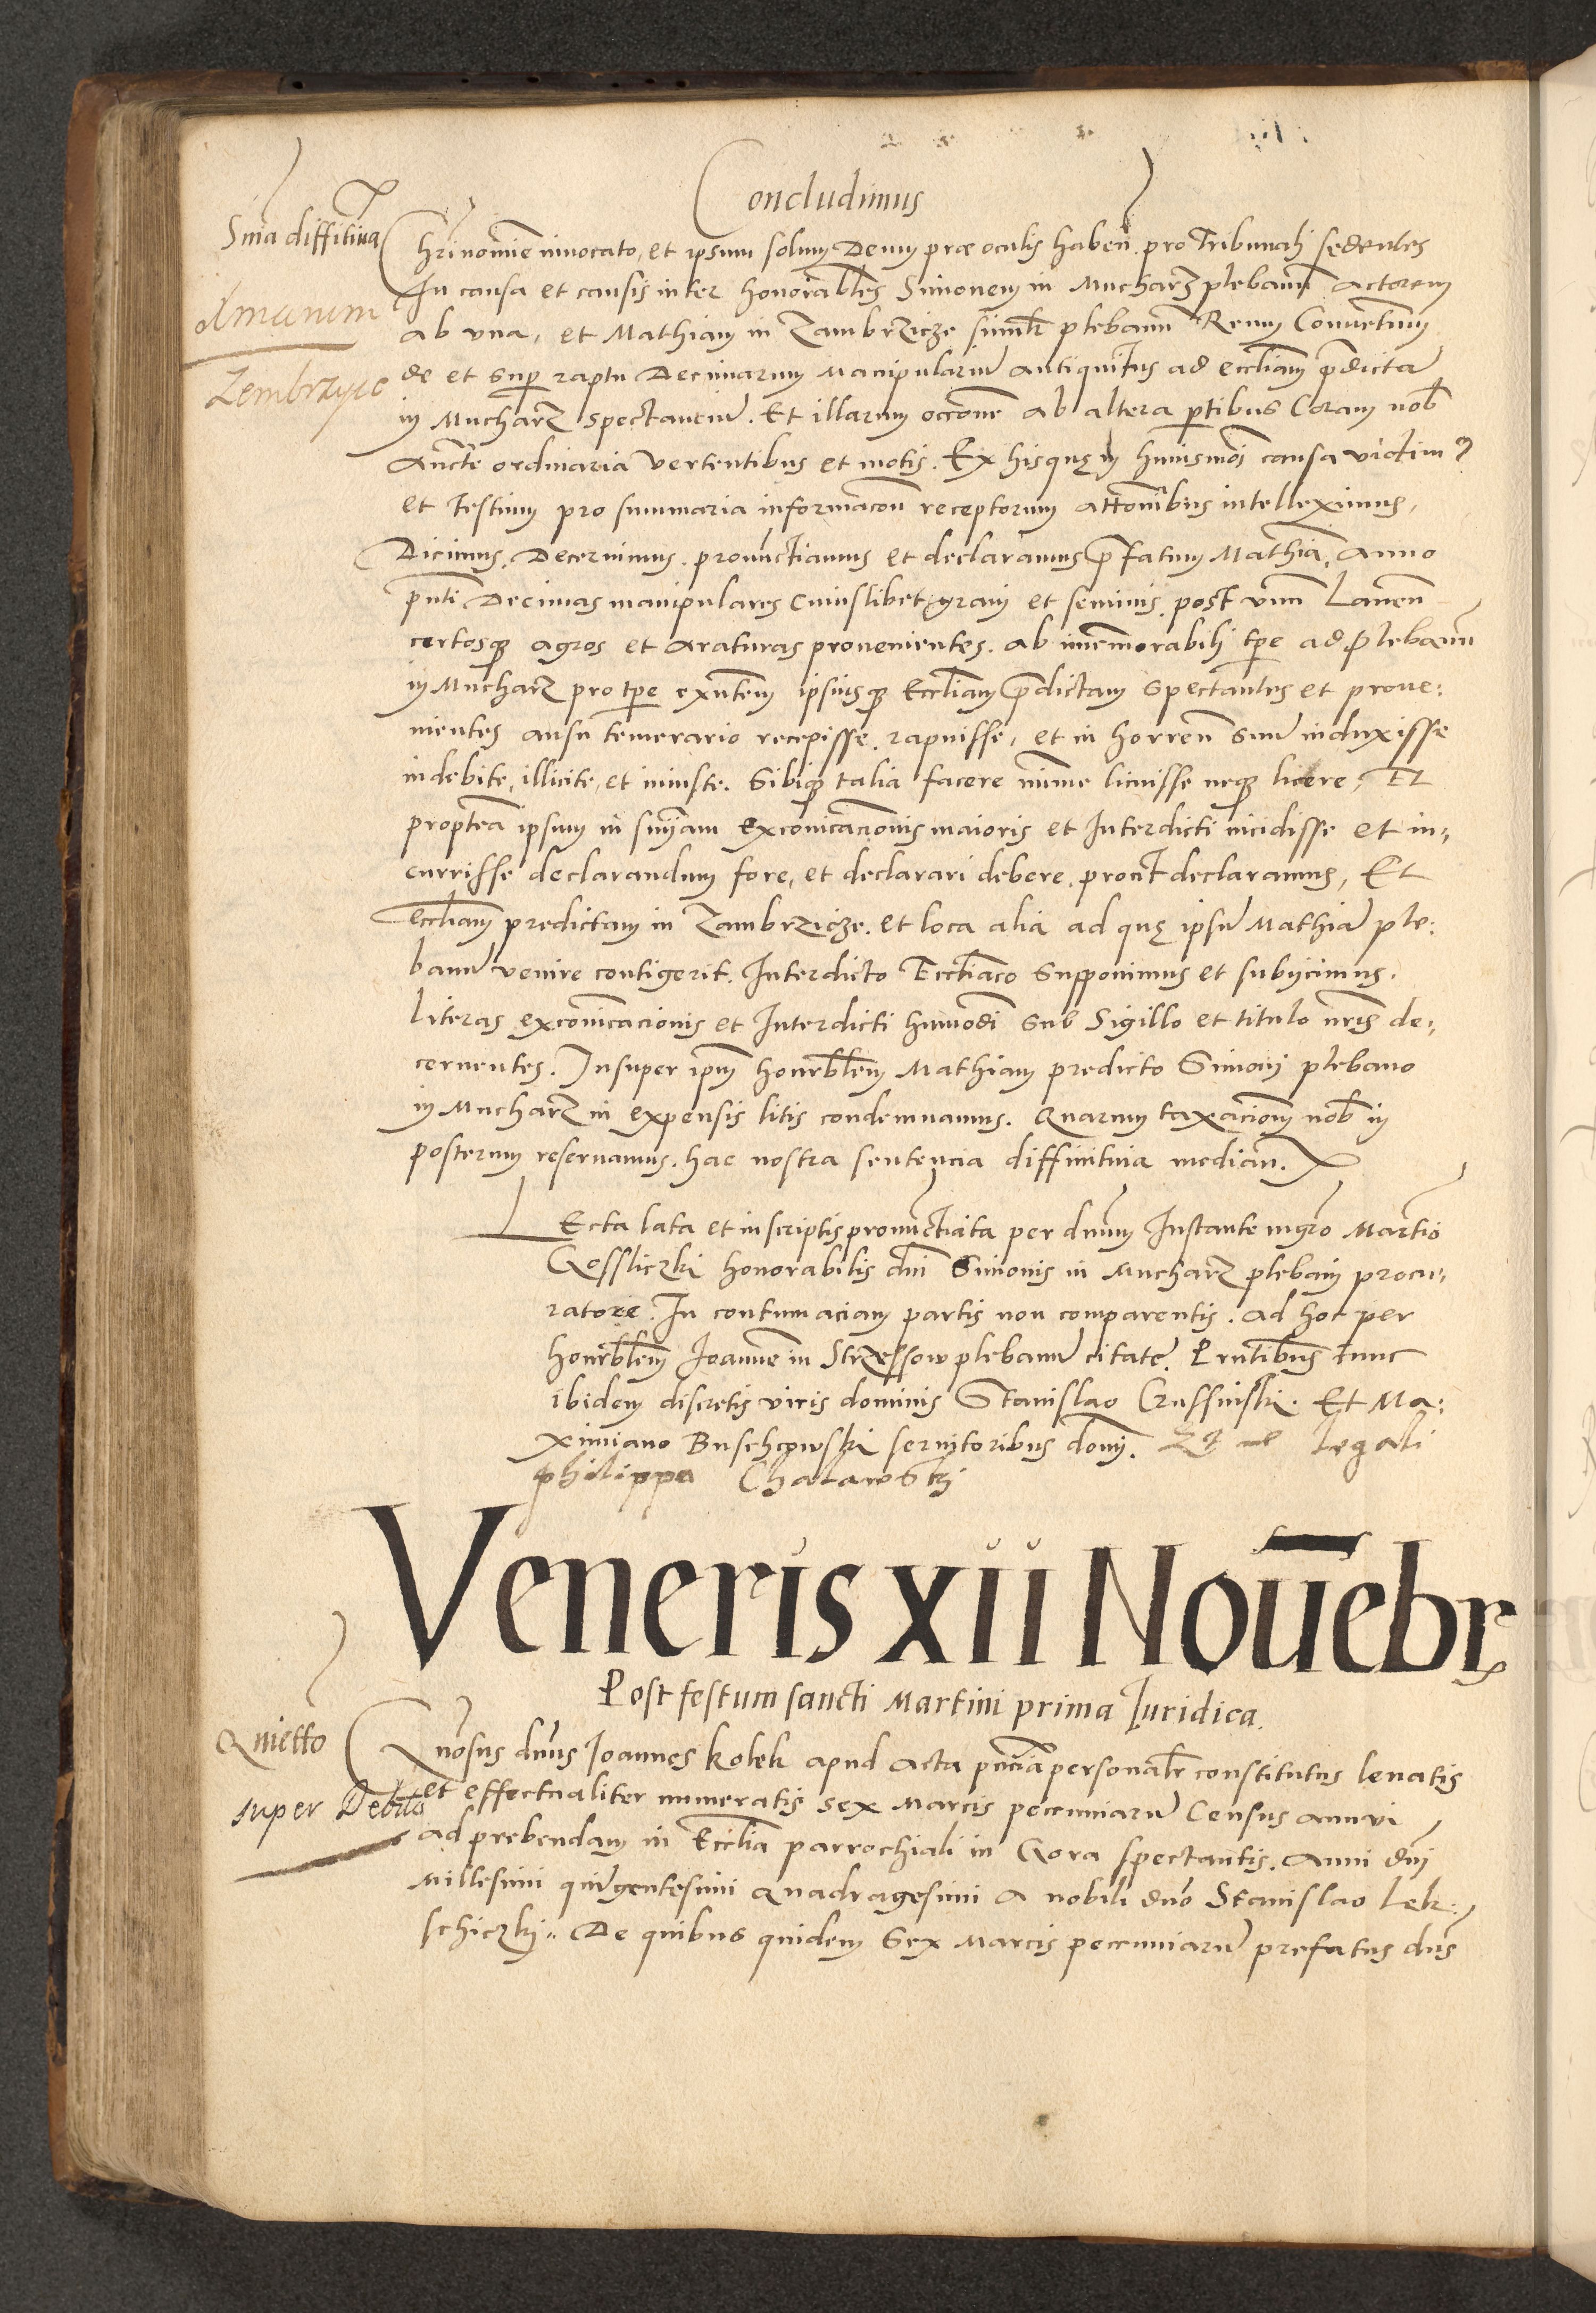 Concludimus
Snia diffitiua
Chri nomine inuocato, et ipsum solum Deum præ oculis haben. pro Tribunali sedentes
In causa et causis inter honorabiles Simonem in Mucharz plebanum Actorem
ab vna, et Mathiam in Zambrzicze similr plebanum Reum Conuentum
Zembrzyce
de et super raptu Decimarum Manipularium antiquitus ad eccliam prdictam
in Mucharz spectancium. Et illarum occone ab altera partibus Coram nob
Aucte ordinaria vertentibus et motis. Ex hisque in huiusmoi causa vidim9
et testium pro summaria informacon receptorum attonibus intelleximus,
Dicimus, Decernimus, pronunctiamus et declaramus prfatum Mathiam, Anno
pnti Decimas manipulares cuiuslibet grani et seminis post vnum Laneum
certosque agros et Araturas prouenientes. ab immemorabili tpe ad plebanum
in Mucharz pro tpe exntem ipsiusque Eccliam prdictam spectantes et proue:
nientes ausu temerario recepisse, rapuisse, et in horreum suum induxisse
indebite, illicite, et iniuste. Sibique talia facere minime licuisse neque licere, Et
proptea ipsum in sniam exconicacionis maioris et Interdicti incidisse et in,
currisse declarandum fore, et declarari debere, prout declaramus, Et
Eccliam predictam in Zambrzicze. et loca alia ad que ipsum Mathiam ple:
banum venire contigerit. Interdicto Eccliaco supponimus et subijcimus.
literas exconicacionis et Interdicti huiusmodi sub Sigillo et titulo nris de,
cernentes. Insuper ipm honorblem Mathiam predicto Simoni plebano
in Mucharz in expensis litis condemnamus. Quarum taxacionem nob in
posterum reseruamus. hac nostra sentencia diffinitiua median.
Lecta lata et in scriptis pronunctiata per dnum Instante mgro Martino
Gossliczki honorabilis dni Simonis in Mucharz plebani procu,
ratore. In contumaciam partis non comparentis. ad hoc per
honorblem Joannem in Strzessow plebanum citate. Prntibus tunc
ibidem discretis viris dominis Stanislao Grussinski. Et Ma:
ximiano Buschcowski seruitoribus domi. Legali
philippo Chatawski
Veneris xii Nouebr
Post festum sancti Martini prima Iuridica.
Quietto
super Debito
Gnosus dnus Joannes kotek apud Acta pncia personalr constitutus leuatis
et effectualiter numeratis sex Marcis pecuniarum Census annui
ad prebendam in Ecclia parrochiali in Gora spectantis. Anni dni
Millesimi quingentesimi Quadragesimi a nobili dno Stanislao Lek:
schiczki. De quibus quidem Sex Marcis pecuniarum prefatus dns